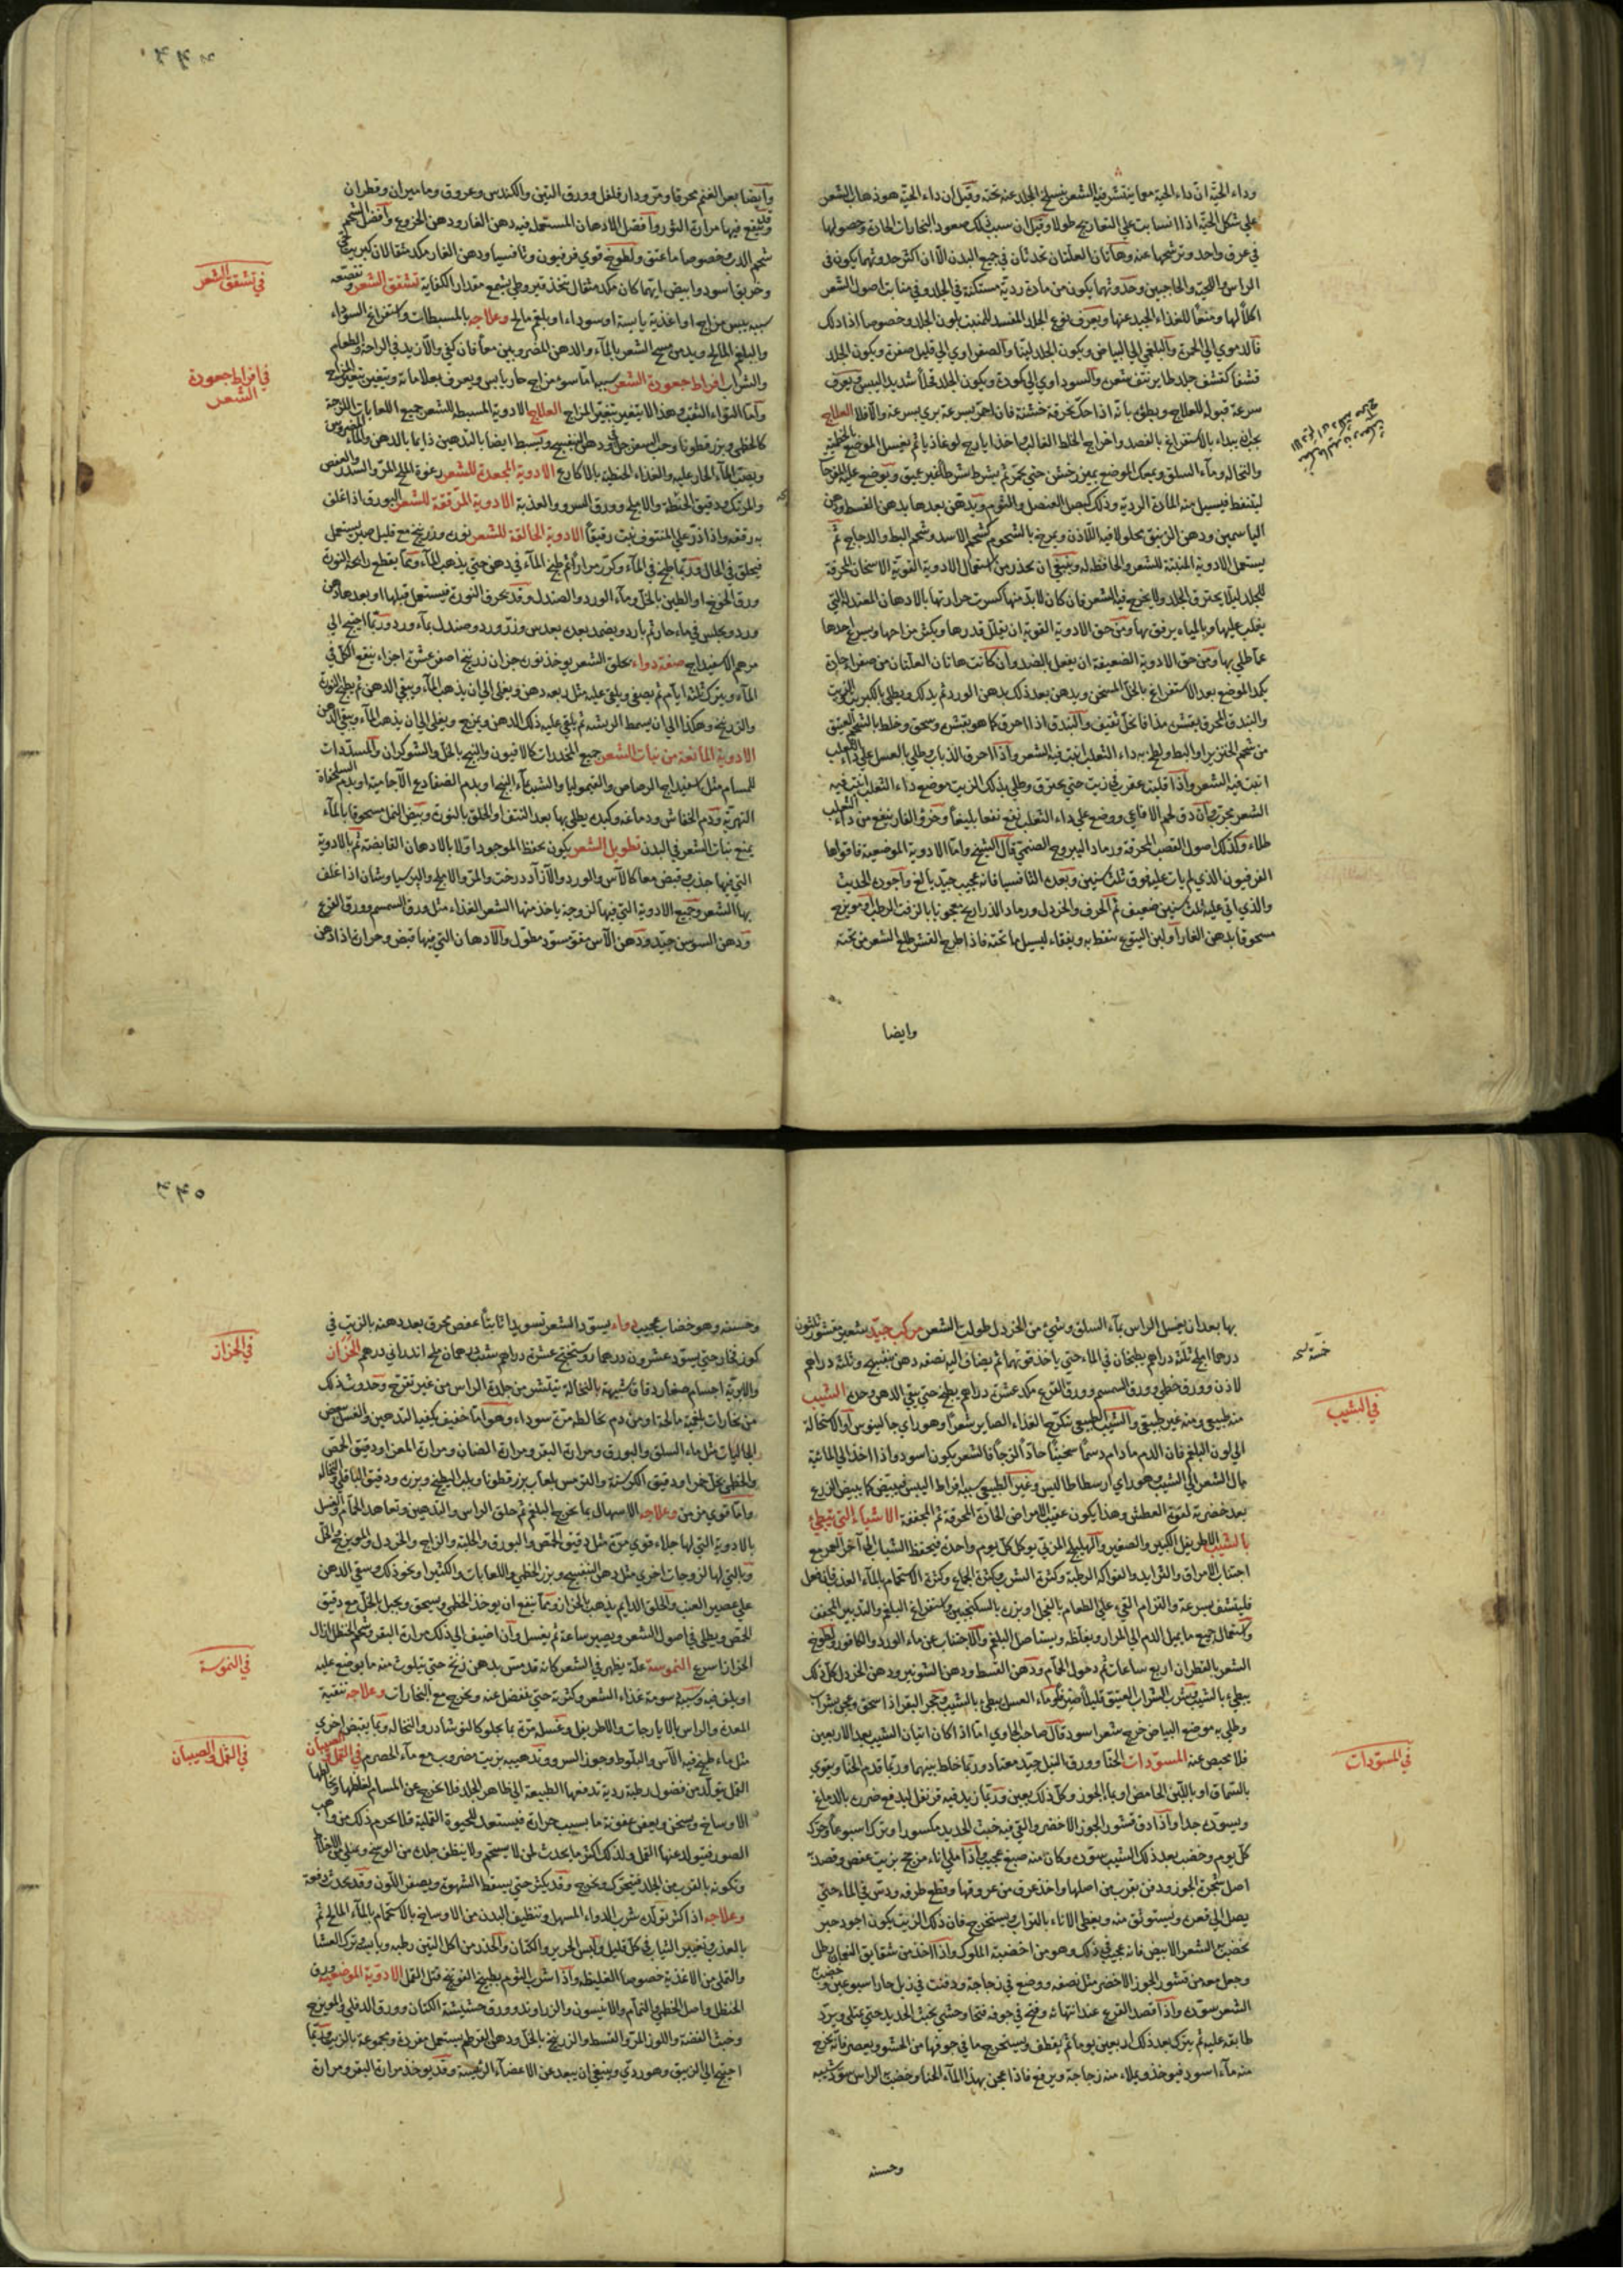 وداء الحيّة انّ داء الحية معما ينتثر فيه الشعر ينسلخ الجلد عنه تحته وقيل ان داء الحيّة هو ذهاب الشعر
على شكل الحيّة اذا انسابت على التعاريج طولا وقيل ان سبب ذلك صعود البخارات الحارة وحصولها
في عرق واحد وترشحها عنه وهاتان العلّتان تحدثان في جميع البدن الّا ان اكثر حدوثهما يكون في
الراس واللحية والحاجبين وحدوثهما يكون من مادة رديّة مستكنة في الجلد وفي منابت اصول الشعر
اكلاً لها ومنعاً للغذاء الجيد عنها ويعرف نوع الخلط المفسد للمنبت بلون الجلد وخصوصا اذا دلك
فالدموي الى الحمرة والبلغمي الى البياض ويكون الجلد لينا والصفراوي الى قليل صفرة ويكون الجلد
قشفا كقشف جلد طاير نتف شعره والسوداوي الى كمودة ويكون الجلد قحلاً شديد اليبس ويعرف
سرعة قبوله للعلاج وبطئه بانّه اذا حكّ بخرقة خشنة فان احمرّ بسرعة بري بسرعة والا فلا العلاج
يجب ان يبداء بالاستفراغ بالفصد واخراج الخلط الغالب باخذ ايارج لوغاذيا ثم يغسل الموضع بالخطمية
والنخالة وماء السلق ويدلك الموضع بميزر خشن حتى يحمرّ ثم يشرط شرطا غير عميق ويوضع عليه المقرّحا
ليتنفط فيسيل منه المادة الردية وذلك كبصل العنصل والثوم ويدهن بعدها بدهن القسط ودهن
الياسمين ودهن الزنبق محلولا فيه اللاذن ويمرخ بالشحوم كشحم الاسد وشحم البط والدجاج ثمّ
يستعمل الادوية المنبتة للشعر والحافظة له وينبغي ان يحذر من استعمال الادوية القوية الاسخان المحرقة
للجلد ليلا يحترق الجلد ولا يخرج فيه الشعر فان كان لا بدّ منها كسرت حرارتها بالادهان المعتدلة التي
يغلب عليها وبالمياه يرفق بها ومن حق الادوية القوية ان يقلل قدرها ويكثر مزاجها ويسرع اخذها
عما طلي بها ومن حق الادوية الضعيفة ان يفعل بالضد وان كانت هاتان العلتان من صفراء حارة
يكمد الموضع بعد الاستفراغ بالخل المسخن ويدهن بعد ذلك بدهن الورد ثم يدلك ويطلى بالكبريت
والبندق المحرق بقشره مدافا بخل ثقيف والبندق اذا احرق كما هو بقشره وسحق وخلط بالشحم العتيق
من شحم الخنزير او البط ولطخ به داء الثعلب انبت فيه الشعر واذا احرق الذباب وطلي بالعسل على داء الثعلب
انبت فيه الشعر واذا قليت عقرب في زيت حتى يحترق وطلي بذلك الزيت موضع داء الثعلب انبت فيه
الشعر مجرب وان دق لحم الافاعي ووضع على داء الثعلب نفع نفعا بليغاً وخرؤ الفار ينفع من داء الثعلب
طلاء وكذلك اصول القصب المحرقة ورماد اليبروح الصنمي قال الشيخ واما الادوية الموضعية فاقواها
الفرفيون الذي لم يات عليه فوق ثلث سنين وبعده الثافسيا فانه عجيب جيد بالغ واجوده الحديث
والذي اتى عليه ثلث سنين ضعيف ثم الحرف والخردل ورماد الذراريح معجونا بالزفت الرطب او مويزج
مسحوقا بدهن الغار او لبن اليتوع ينفط به ويفقاء ليسيل ما تحته فاذا طرح القشر طلع الشعر من تحته
وايضا
وايضا بعر الغنم محرقا ومرّ ودار فلفل وورق التين والكندس وعروق وماميران وقطران
وقد ينفع فيها مرارة الثور وافضل الادهان المستعملة فيه دهن الغار ودهن الخروع وافضل الشحم
شحم الدب خصوصا ما عتق ولطوخ قوي فرفيون وثافسيا ودهن الغار من كل مثقالان كبريت حي
وخربق اسود وابيض ايهما كان من كل مثقال يتخذ قيروطي بشمع مقدار الكفاية تشقق الشعر وتقصفه
سببه يبس مزاج او اغذية يابسة او سوداء او بلغم مالح وعلاجه بالمسبطات واستفراغ السوداء
والبلغم المالح ويدمن مسح الشعر بالماء والدهن المضروبين معاً فان كفى والّا زيد في الراحة والطعام
والشراب افراط جعودة الشعر سببها امّا سوء مزاج حار يابس ويعرف بعلاماته ويتغير بتغير المزاج
وامّا التواء الثقب وهذا لا يتغير بتغيّر المزاج العلاج الادوية المسبطة للشعر جميع اللعابات اللزجة
كالخطمي وبزر قطونا وحب السفرجل ودهن البنفسج ويسبط ايضا بالتدهين دايما بالدهن والماء المضروبين
وبصبّ الماء الحار عليه والغذاء الحنطية بالاكارع الادوية المجعدة للشعر رغوة الملح المرّ والسدر والعفص
والمرتك ودقيق الحنطة والاملج وورق السرو والعذبة الادوية المرققة للشعر البورق اذا غلف
به رققه واذا ذر على المنتوف نبت رقيقاً الادوية الحالقة للشعر نورة وزرنيخ مع قليل صبر يستعمل
فيحلق في الحال وربما طبخ في الماء وكرّر مراراً ثم طبخ الماء في دهن حتى يذهب الماء ومما يقطع رائحة النورة
ورق الخوخ او الطين بالخل وماء الورد والصندل وقد يحرق النورة فيستعمل قبلها او بعدها دهن
ورد ويجلس في ماء حار ثم بارد ويضمد بعده بعدس وزرّ ورد وصندل بماء ورد وربّما احتيج الى
مرهم الاسفيداج صفة دواء يحلق الشعر يوخذ نورة جزان زرنيخ اصفر عشرة اجزاء ينقع الكل في
الماء ويترك ثلثة ايام ثم يصفى ويلقى عليه مثل ربعه دهن ويغلى الى ان يذهب الماء ويبقى الدهن ثم يطبخ النورة
والزرنيخ وهكذا الى ان يسمط الريشة ثم يلقى عليه ذلك الدهن ويمزج ويغلى الى ان يذهب الماء ويبقى الدهن
الادوية المانعة من نبات الشعر جميع المخدرات كالافيون والبنج بالخل والشوكران والمسدّدات
للمسام مثل اسفيداج الرصاص والقيموليا والشب بماء البنج او بدم الضفادع الآجامية او بدم السلحفاة
النهرية ودم الخفاش ودماغه وكبده يطلى بها بعد النتف او الحلق بالنورة وبيض النمل مسحوقا بالماء
يمنع نبات الشعر في البدن تطويل الشعر يكون بحفظ الموجود اوّلا بالادهان القابضة ثم بالادوية
التي فيها جذب وقبض معا كالآس والورد والآزاد درخت والمرّ والاملج والبرسياوشان اذا غلف
بها الشعر وجميع الادوية التي فيها لزوجة ياخذ منها الشعر الغذاء مثل ورق السمسم وورق القرع
ودهن السوسن جيّد ودهن الآس مقو مسود مطول والادهان التي فيها قبض وحرارة اذا دهن
في تشقق الشعر
في افراط جعودة
الشعر
بها بعد ان يغسل الراس بماء السلق وشيء من الخردل طولت الشعر مركب جيّد شعير مقشور ثلثون
درهما املج ثلثة دراهم يطبخان في الماء حتى ياخذ قوتهما ثم يضاف اليه نصفه دهن بنفسج وثلثة دراهم
لاذن وورق خطمي وورق السمسم وورق القرع من كل عشرة دراهم يطبخ حتى يبقى الدهن وحده الشيب
منه طبيعي ومنه غير طبيعي والشيب الطبيعي تكرّج الغذاء الصاير شعراً وهو راي جالينوس او الاستحالة
الى لون البلغم فان الدم ما دام دسماً سخيناً حادّاً لزجاً فالشعر يكون اسود واذا اخذ الى المائية
مال الشعر الى الشيب وهو راي ارسطاطاليس وغير الطبيعي سببه افراط اليبس فيبيضّ كما يبيض الزرع
بعد خضرته لقوة العطش وهذا يكون عقيب الامراض الحادّة المحرقة ثم المجففة الاشياء التي تبطئ
بالشيب الاطريفل الكبير والصغير والهليلج المربى يوكل كل يوم واحدة فيحفظ الشباب الى آخر العمر مع
اجتناب الامراق والثرايد والفواكه الرطبة وكثرة الشرب وكثرة الجماع وكثرة الاستحمام بالماء العذب فان فعل
فلينشف بسرعة والتزام القيء على الطعام بالفجل او بزره بالسكنجبين واستفراغ البلغم والتدبير المجفف
واستعمال جميع ما يميل الدم الى المرار ويغلّظه ويستاصل البلغم والاجتناب عن ماء الورد والكافور ولطوخ
الشعر بالقطران اربع ساعات ثم دخول الحمام ودهن القسط ودهن الشونيز ودهن الخردل كل ذلك
يبطئ بالشيب وشرب الشراب العتيق قليلاً
وطلي به موضع البياض خرج شعرا اسود قال صاحب الحاوي اما اذا كان اتيان الشيب بعد الاربعين
فلا محيص عنه المسوّدات الحنّا وورق النيل جيّد معتاد وربّما خلط بينهما وربما قدم الحنّا ويقوي
بالسمّاق او باللبن الحامض او بماء الجوز وكل ذلك يعين وربّما زيد فيه قرنفل ليدفع ضرره بالدماغ
ويسوّده جدا واذا دق قشور الجوز الاخضر والقي فيه خبث الحديد مكسورا وترك اسبوعاً وحرّك
كل يوم وخضب بعد ذلك الشيب سوّده وكان منه صبغ عجيب واذا ملي اناء مزجج بزيت عفص وقصد به
اصل شجرة الجوز ودفن بقرب من اصلها واخذ عرق من عروقها وقطع طرفه ودسّ في الماء حتى
يصل الى قعره ويستوثق منه ويغطى الاناء بالتراب ويستخرج فان ذلك الزيت يكون اجود حبر
يخضب الشعر الابيض فانه عجيب في ذلك وهو من اخضبة الملوك واذا اخذ من شقايق النعمان رطل
وجعل معه من قشور الجوز الاخضر مثل نصفه ووضع في زجاجة ودفنت في زبل حار اسبوعين وخضب
الشعر سوّده واذا قصد القرع عند انتهائه وفتح في جوفه فتحا وحشي بخبث الحديد حتى يمتلي ويردّ
طابقه عليه ثم يترك بعد ذلك اربعين يوما ثم يقطف ويستخرج ما في جوفها من الحشو ويعصر فانّه يخرج
منه ماء اسود فيوخذ ويملاء منه زجاجة ويرفع فاذا عجن بهذا الماء الحنا وخضب الراس سوّد شيبه
وحسنه
في الشيب
في المسوّدات
وحسنه وهو خضاب عجيب دواء يسوّد الشعر تسويدا ثابتاً عفص محرق بعد دهنه بالزيت في
كوز فخار حتى يسوّد عشرون درهما روسختج عشرة دراهم شب درهمان ملح اندراني درهم الحزاز
والابرية اجسام صغار دقاق شبيهة بالنخالة تنتثر من جلدة الراس من غير تقرّح وحدوث ذلك
من بخارات بلغمية مالحة او من دم يخالطه مرّة سوداء وهو امّا خفيف يكفيه التدهين والغسل ببعض
الجاليات مثل ماء السلق والبورق ومرارة البقر ومرارة الضان ومرارة المعز ودقيق الحمص
والخطمي بخل خمر او دقيق الكرسنة والترمس بلعاب بزر قطونا ولب البطيخ وبزره ودقيق الباقلى والنخالة
وامّا قوي مزمن وعلاجه الاسهال بما يخرج البلغم ثم حلق الراس والتدهين وتعاهد الحمام والغسل
بالادوية التي لها جلاء قوي مرّة مثل دقيق الحمص والبورق والحلبة والزاج والخردل والمويزج في الخل
وبالتي لها لزوجات اخرى مثل دهن البنفسج وبزر الخطمي واللعابات والكثيرا ونحو ذلك وسقي الدهن
على عصير العنب والحلق الدايم يذهب الحزاز ومما ينفع ان يوخذ الخطمي ويسحق ويجبل بالخل مع دقيق
الحمص ويطلى في اصول الشعر ويصبر ساعة ثم يغسل وان اضيف الى ذلك مرارة البقر وشحم الحنظل ازال
الحزاز اسرع النموسة علّة يظهر في الشعر كانه قد مسّ بدهن زنخ حتى يتلوث منه ما يوضع عليه
او يلف فيه وسببه سومة غذاء الشعر وكثرته حتى يفضل عنه ويخرج مع البخارات وعلاجه تنقية
المعدة والراس بالايارجات والاطريفل وغسله مرّة بما يجلو كالنوشادر والنخالة وبما يقبض اخرى
مثل ماء طبخ فيه الآس والبلّوط وجوز السرو وتدهينه بزيت مضروب مع ماء الحصرم في القمل والصيبان
القمل يتولّد من فضول رطبة ردية تدفعها الطبيعة الى ظاهر الجلد فلا يخرج عن المسام لغلظها ويخالطها
الاوساخ ويسخن ويعفن عفونة ما بسبب حرارة فيستعد للحيوة القملية فلا يحرم ذلك من واهب
الصور فيتولد عنها القمل ولذلك اكثر ما يحدث لمن لا يستحم ولا ينظف جلده من الوسخ
وتكونه بالقرب من الجلد فيتحرّك ويخرج وقد يكثر حتى يسقط الشهوة ويصفر اللون وقد يحدث دفعة
وعلاجه اذا كثر تولّده شرب الدواء المسهل وتنظيف البدن من الاوساخ بالاستحمام بالماء المالح ثم
بالعذب وتغيير الثياب في كل قليل ولبس الحرير والكتان والحذر من اكل التين رطبه ويابسه وترك العشا
والتملي من الاغذية خصوصا الغليظة واذا شرب الثوم بطبيخ الفوتنج قتل القمل الادوية الموضعية ورق
الحنظل واصل الخطمي والنمّام والانيسون والزراوند وورق حشيشة الكتان وورق الدفلى والمويزج
وخبث الفضة واللوز المرّ والقسط والزرنيخ بالخل ودهن القرطم يستعمل مفردة ومجموعة بالزيت وربّما
احتيج الى الزيبق وهو ردي وينبغي ان يبعد عن الاعضاء الرئيسة وقد يوخذ مرارة البقر ومرارة
في الحزاز
في النموسة
في القمل والصيبان